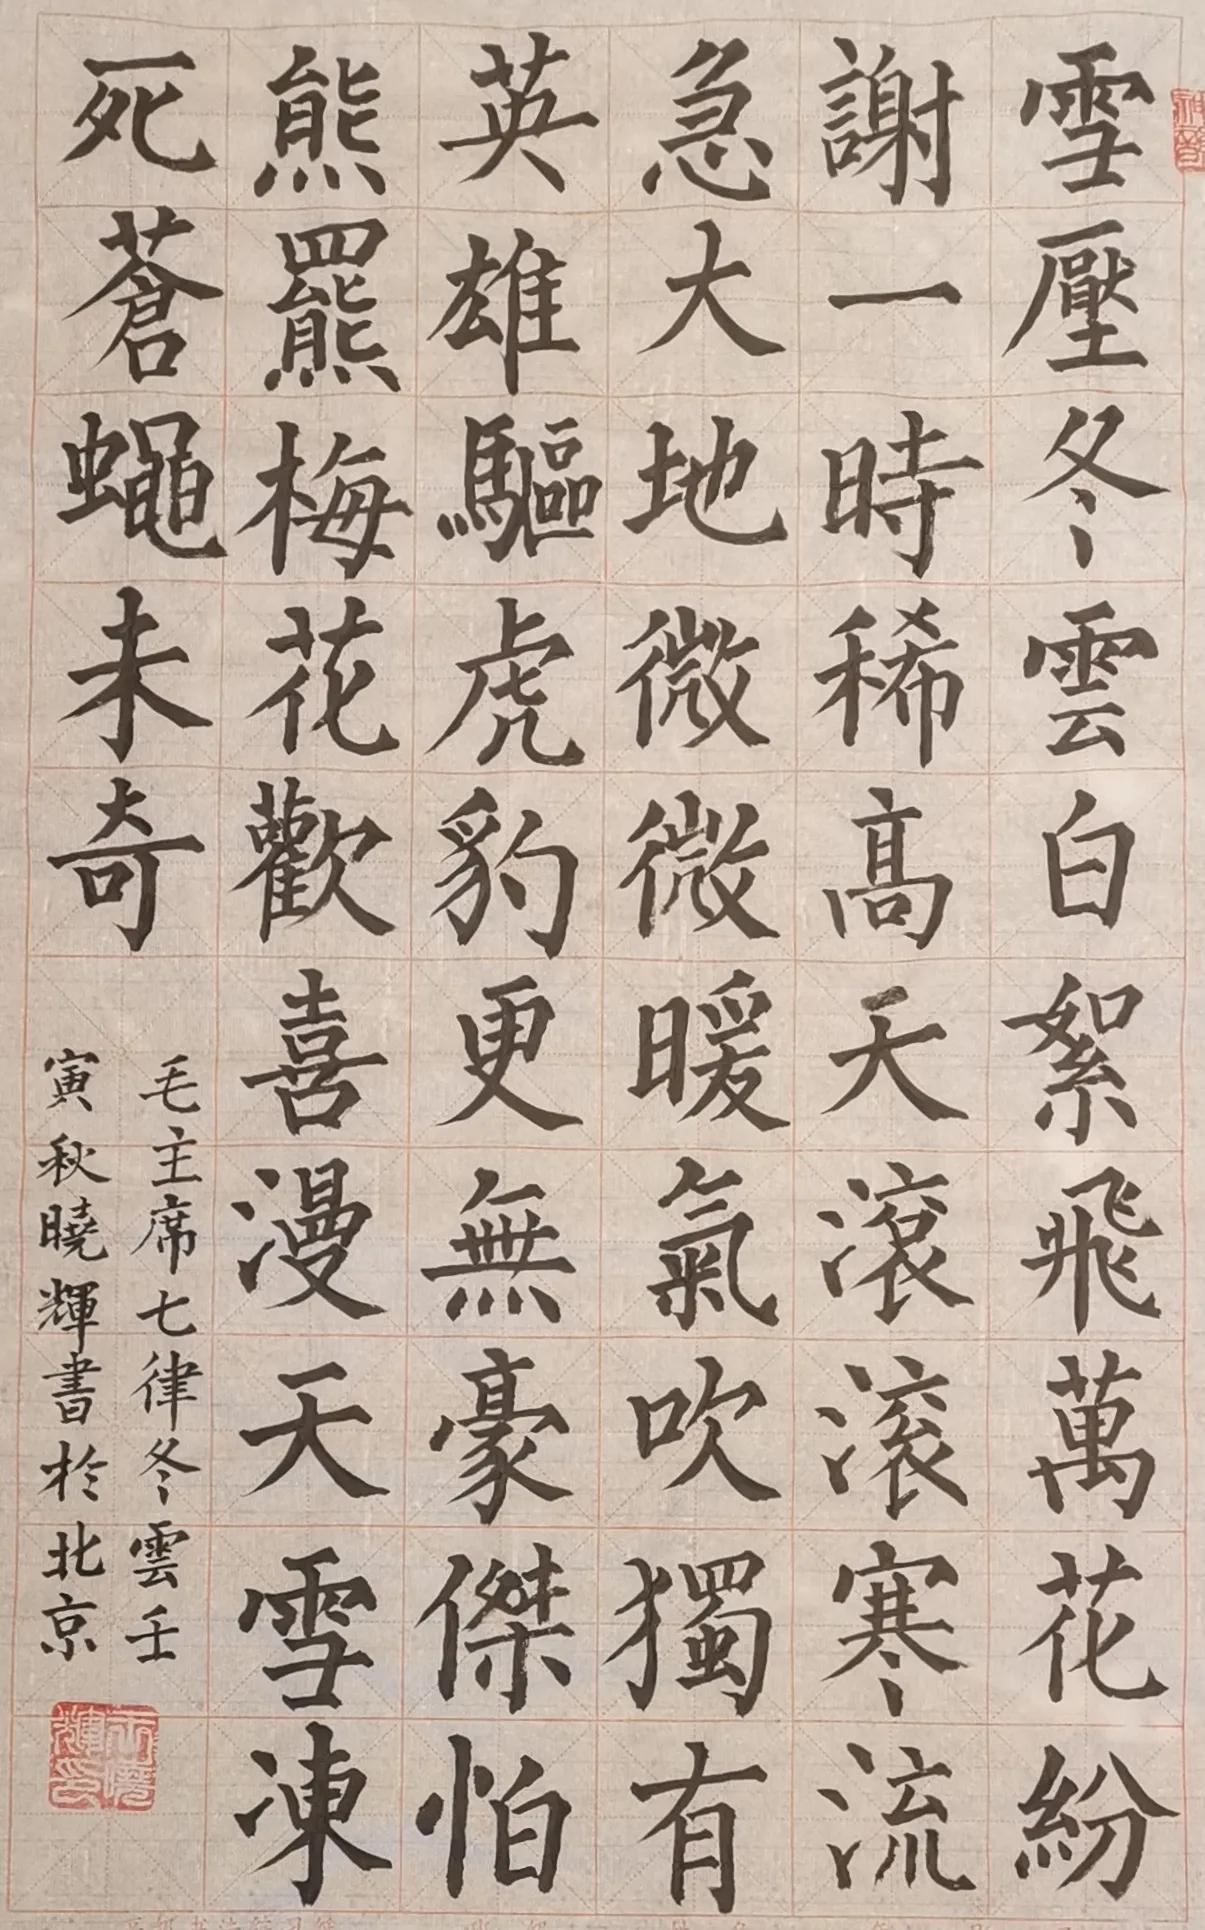 雪壓冬雲白絮飛萬花紛
謝一時稀高天滾滾寒流
急大地微微暖氣吹獨有
英雄驅虎豹更無豪傑怕
熊羆梅花歡喜漫天雪凍
死蒼蠅未奇
毛主席七律冬雲壬
寅秋曉輝書於北京